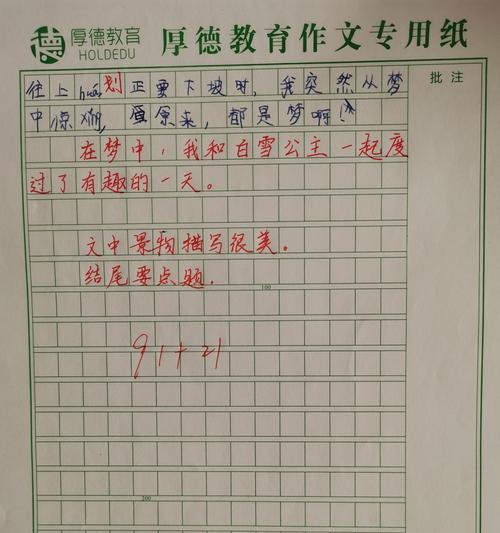 德 厚德教育 HOLDEDU 厚德教育作文专用纸
批注
往上huá划正要下坡时，我突然从梦
中惊醒，原来，都是梦啊！
在梦中，我和白雪公主一起度
过了有趣的一天。
文中景物描写很美。
结尾要点题.
100
91+21
200